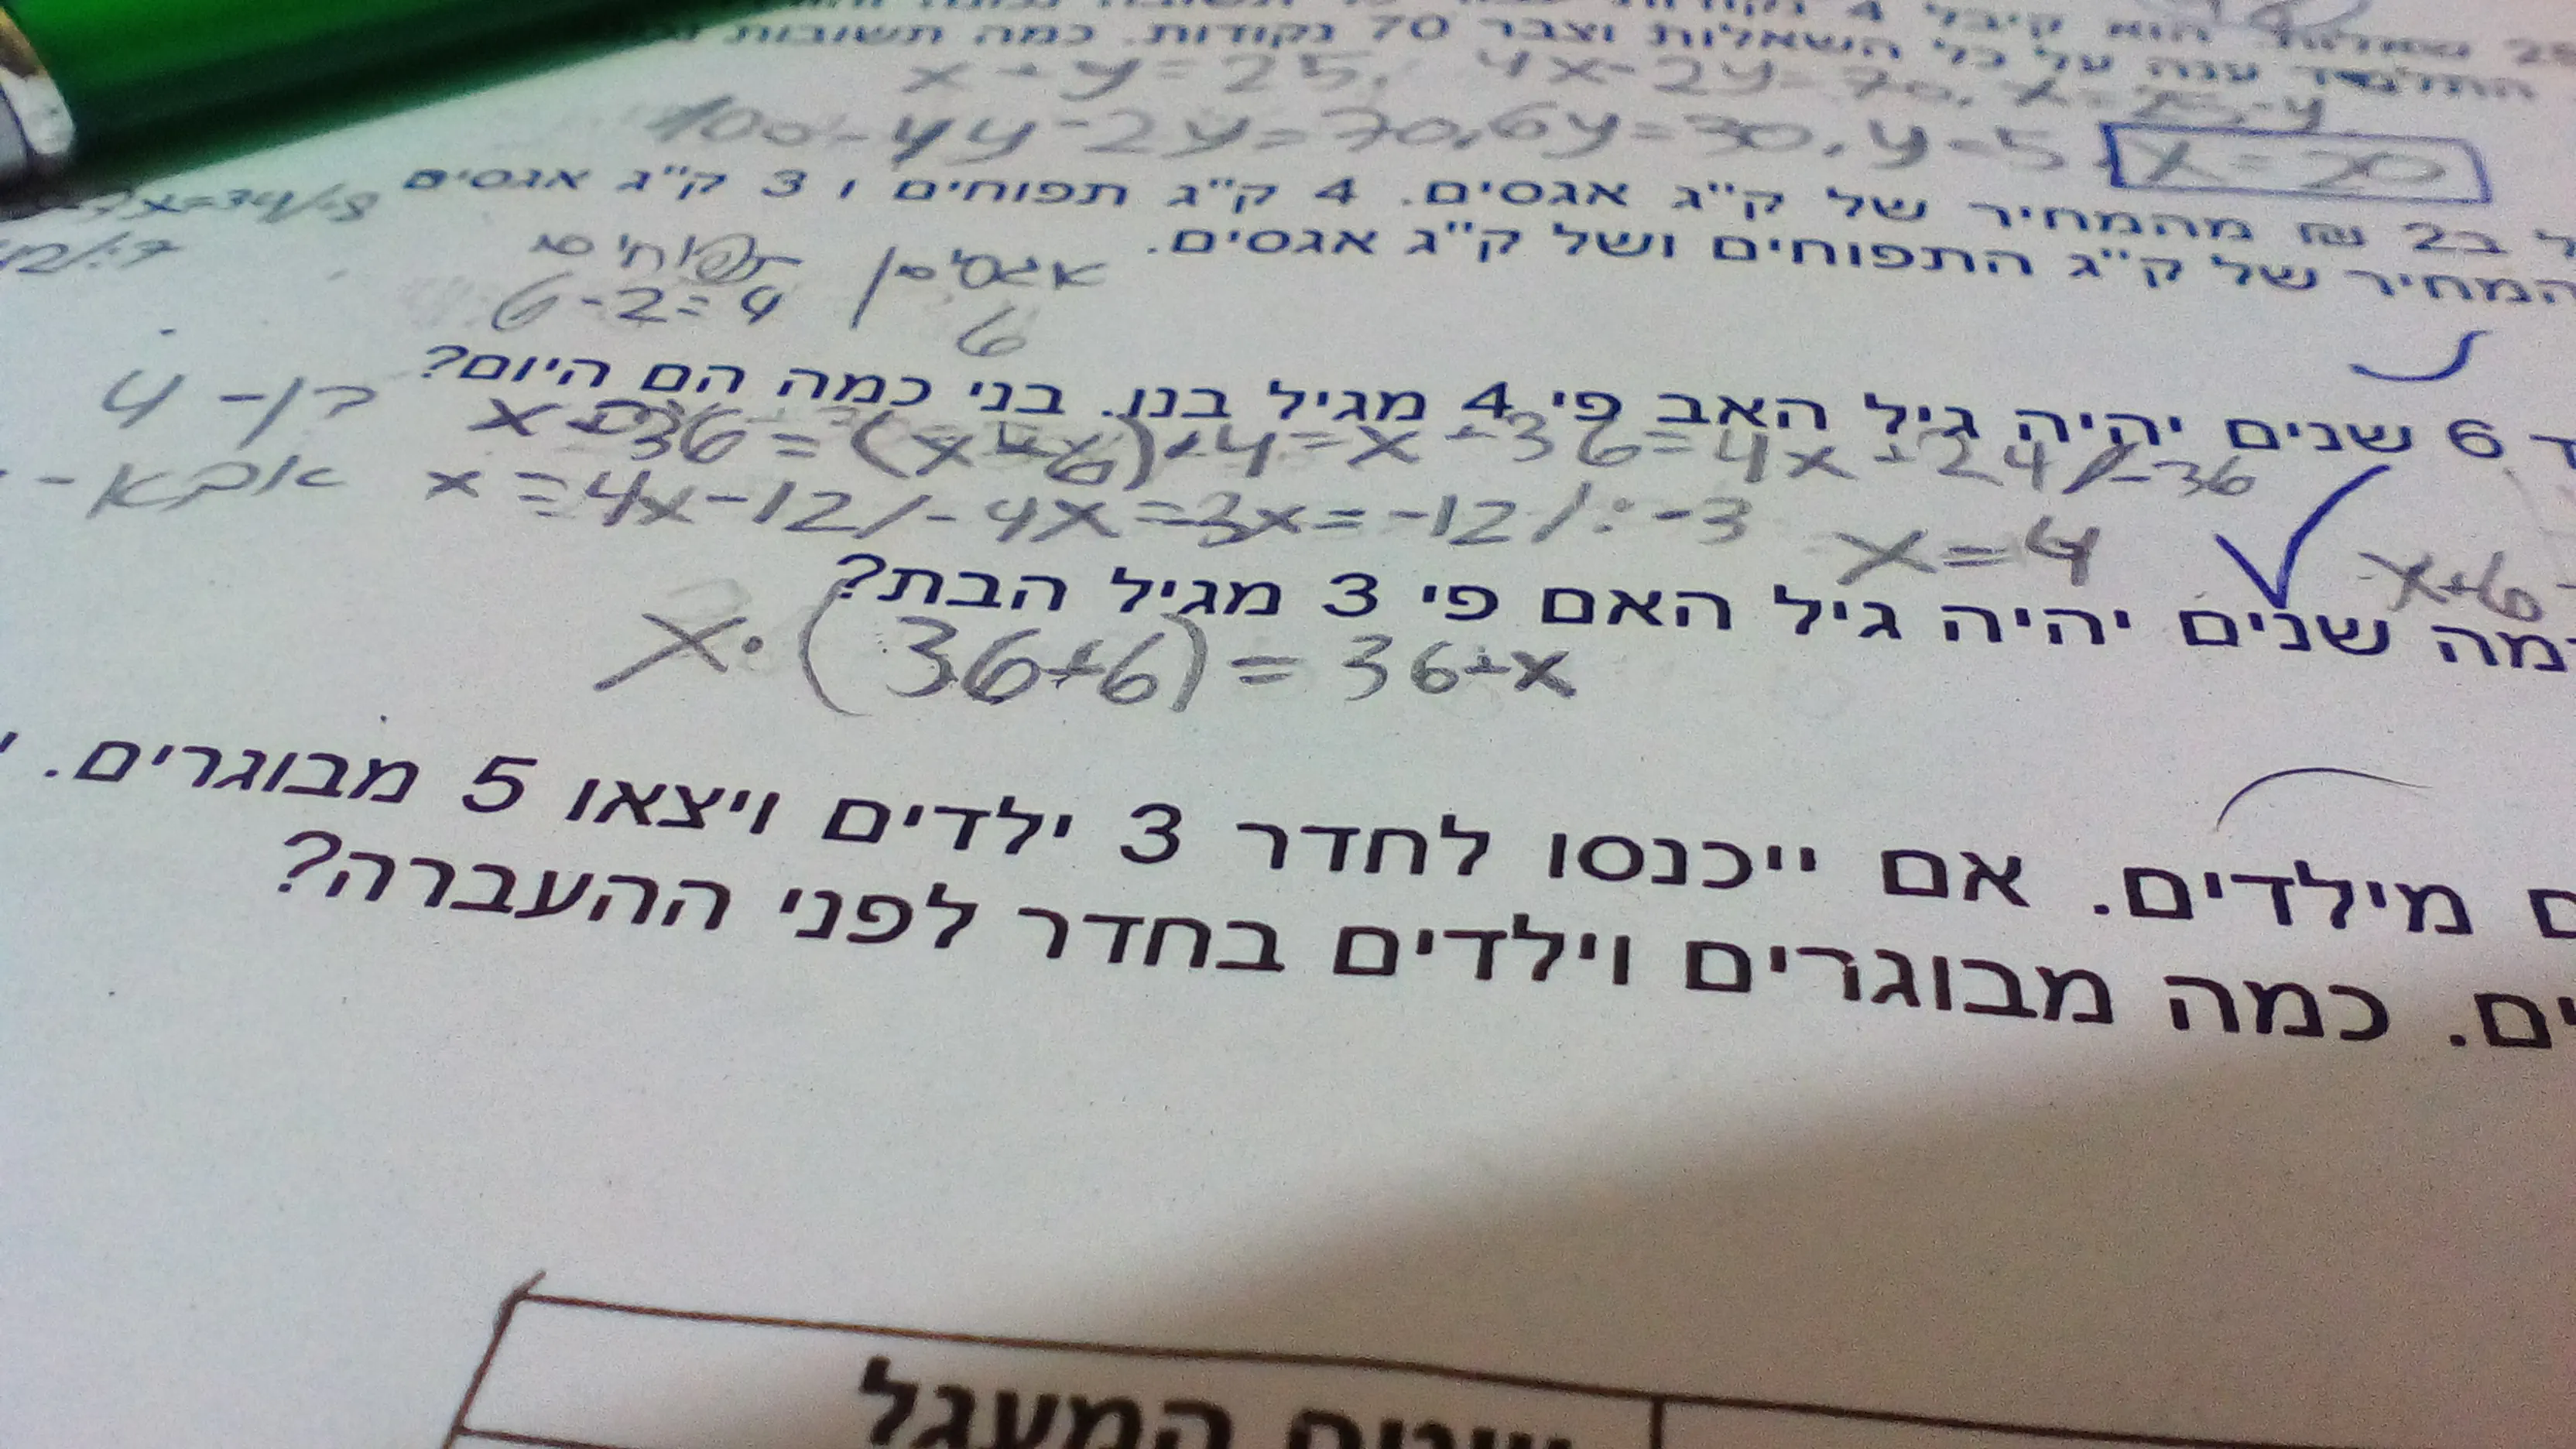 הוא קיבל 4
התלמיד ענה על כל השאלות וצבר 70 נקודות. כמה תשובות
x + y = 25, 4x - 2y = 70, x = 25 - y
100 - 4y - 2y = 70, 6y = 30, y = 5 x = 20
ב2 ₪ מהמחיר של ק"ג אגסים. 4 ק"ג תפוחים ו 3 ק"ג אגסים
המחיר של ק"ג התפוחים ושל ק"ג אגסים.
אגסים | תפוחים
6 6-2=4
6 שנים יהיה גיל האב פי 4 מגיל בנו. בני כמה הם היום?
בן - 4
x+36=(x+6)·4=x+36=4x+24/-36
אבא -
x=4x-12/-4x=-3x=-12/:-3 x=4
x+6
כמה שנים יהיה גיל האם פי 3 מגיל הבת?
x·(36+6)=36+x
מילדים. אם ייכנסו לחדר 3 ילדים ויצאו 5 מבוגרים.
ים. כמה מבוגרים וילדים בחדר לפני ההעברה?
המעגל